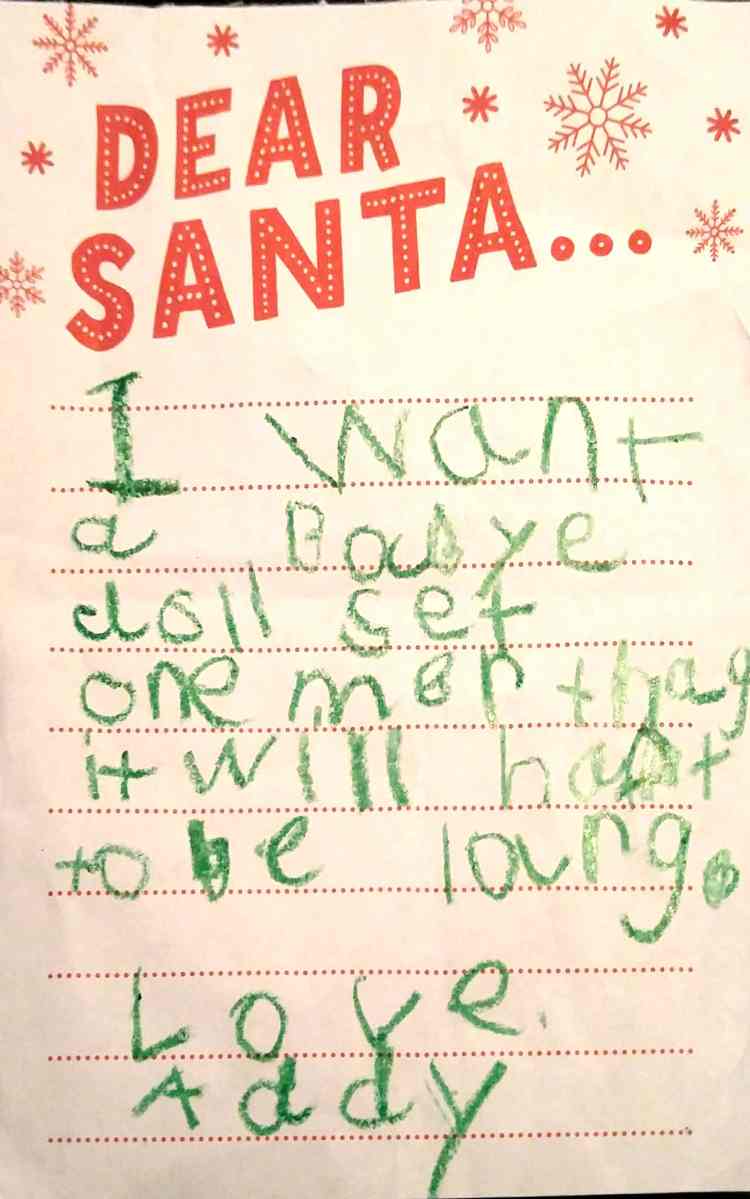 DEAR
SANTA...
I want
a Babye
doll set
one mor thag
it will haft
to be loung.
Love.
Addy